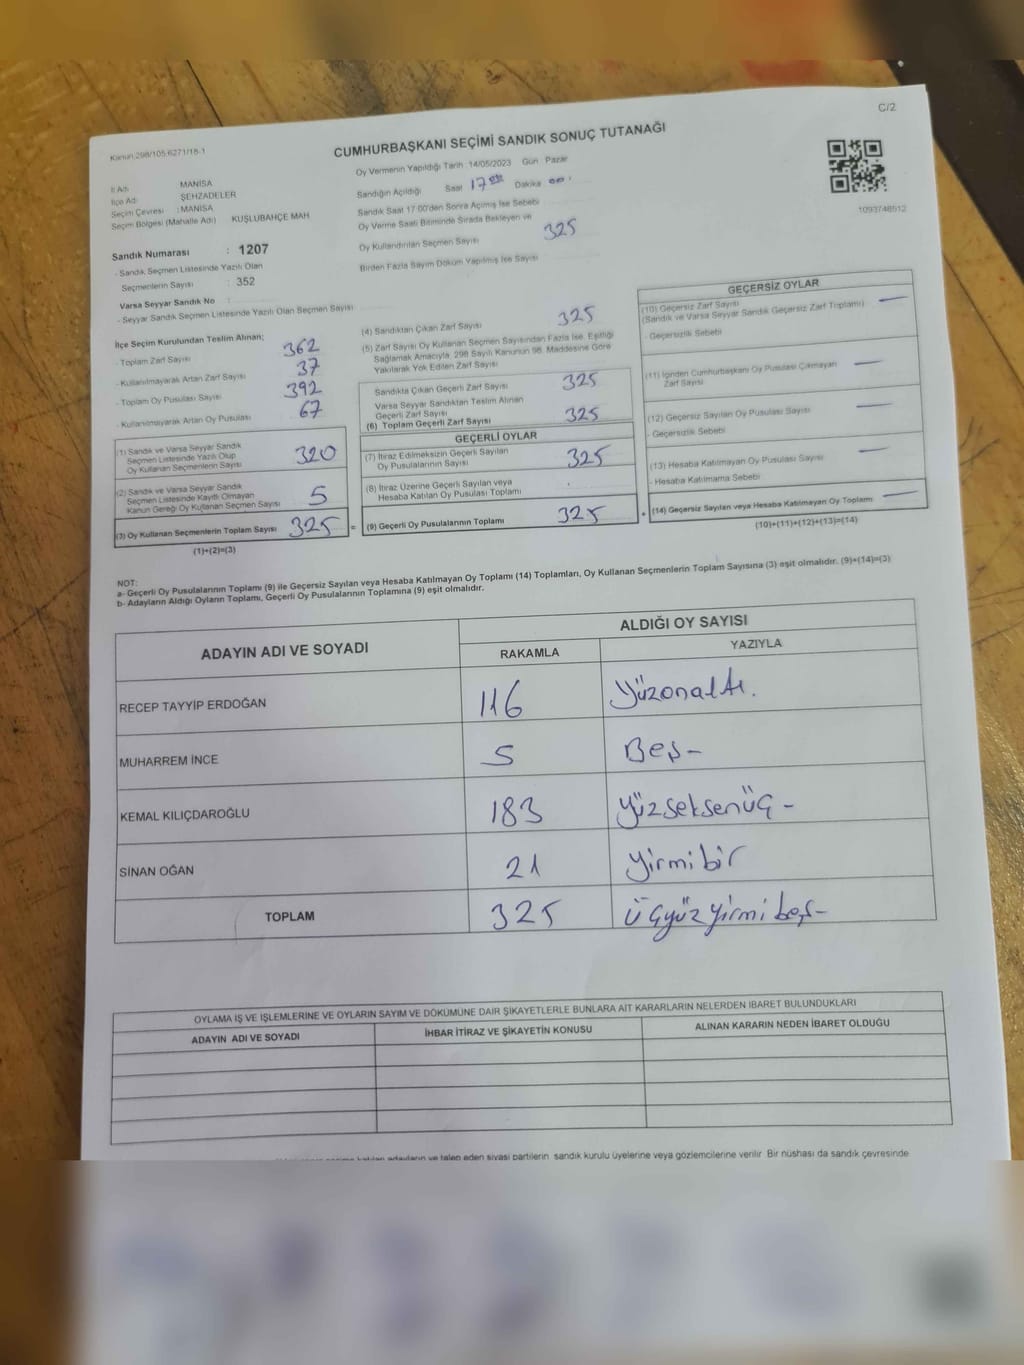 C/2
Kanun:298/105 6271/18-1
CUMHURBAŞKANI SEÇİMİ SANDIK SONUÇ TUTANAĞI
İl Adı MANİSA
İlçe Adı ŞEHZADELER
Seçim Çevresi : MANİSA
Seçim Bölgesi (Mahalle Adı) KUŞLUBAHÇE MAH
Sandık Numarası : 1207
- Sandık Seçmen Listesinde Yazılı Olan
Seçmenlerin Sayısı : 352
Varsa Seyyar Sandık No :
- Seyyar Sandık Seçmen Listesinde Yazılı Olan Seçmen Sayısı
Oy Vermenin Yapıldığı Tarih :14/05/2023 Gün Pazar
Sandığın Açıldığı Saat 17 Dakika
Sandık Saat 17:00'den Sonra Açımış İse Sebebi
Oy Verme Saati Bitiminde Sırada Bekleyen ve
Oy Kullandırılan Seçmen Sayısı 325
Birden Fazla Sayım Döküm Yapılmış İse Sayısı
1093748512
İlçe Seçim Kurulundan Teslim Alınan;
- Toplam Zarf Sayısı 362
- Kullanılmayarak Artan Zarf Sayısı 37
- Toplam Oy Pusulası Sayısı 392
- Kullanılmayarak Artan Oy Pusulası 67
(1) Sandık ve Varsa Seyyar Sandık
Seçmen Listesinde Yazılı Olup
Oy Kullanan Seçmenlerin Sayısı 320
(2) Sandık ve Varsa Seyyar Sandık
Seçmen Listesinde Kayıtlı Olmayan
Kanun Gereği Oy Kullanan Seçmen Sayısı 5
(3) Oy Kullanan Seçmenlerin Toplam Sayısı 325 =
(1)+(2)=(3)
(4) Sandıktan Çıkan Zarf Sayısı 325
(5) Zarf Sayısı Oy Kullanan Seçmen Sayısından Fazla İse, Eşitliği
Sağlamak Amacıyla, 298 Sayılı Kanunun 98. Maddesine Göre
Yakılarak Yok Edilen Zarf Sayısı
Sandıkta Çıkan Geçerli Zarf Sayısı 325
Varsa Seyyar Sandıktan Teslim Alınan
Geçerli Zarf Sayısı
(6) Toplam Geçerli Zarf Sayısı 325
GEÇERLİ OYLAR
(7) İtiraz Edilmeksizin Geçerli Sayılan
Oy Pusulalarının Sayısı 325
(8) İtiraz Üzerine Geçerli Sayılan veya
Hesaba Katılan Oy Pusulası Toplamı
(9) Geçerli Oy Pusulalarının Toplamı 325 +
GEÇERSİZ OYLAR
(10) Geçersiz Zarf Sayısı —
(Sandık ve Varsa Seyyar Sandık Geçersiz Zarf Toplamı)
- Geçersizlik Sebebi
(11) İçinden Cumhurbaşkanı Oy Pusulası Çıkmayan —
Zarf Sayısı
(12) Geçersiz Sayılan Oy Pusulası Sayısı —
- Geçersizlik Sebebi
(13) Hesaba Katılmayan Oy Pusulası Sayısı —
- Hesaba Katılmama Sebebi
(14) Geçersiz Sayılan veya Hesaba Katılmayan Oy Toplamı —
(10)+(11)+(12)+(13)=(14)
NOT:
a- Geçerli Oy Pusulalarının Toplamı (9) ile Geçersiz Sayılan veya Hesaba Katılmayan Oy Toplamı (14) Toplamları, Oy Kullanan Seçmenlerin Toplam Sayısına (3) eşit olmalıdır. (9)+(14)=(3)
b- Adayların Aldığı Oyların Toplamı, Geçerli Oy Pusulalarının Toplamına (9) eşit olmalıdır.
ADAYIN ADI VE SOYADI ALDIĞI OY SAYISI
RAKAMLA YAZIYLA
RECEP TAYYİP ERDOĞAN 116 Yüzonaltı.
MUHARREM İNCE 5 Beş-
KEMAL KILIÇDAROĞLU 183 Yüzseksenüç-
SİNAN OĞAN 21 Yirmibir
TOPLAM 325 Üçyüzyirmibeş-
OYLAMA İŞ VE İŞLEMLERİNE VE OYLARIN SAYIM VE DÖKÜMÜNE DAİR ŞİKAYETLERLE BUNLARA AİT KARARLARIN NELERDEN İBARET BULUNDUKLARI
ADAYIN ADI VE SOYADI İHBAR İTİRAZ VE ŞİKAYETİN KONUSU ALINAN KARARIN NEDEN İBARET OLDUĞU
adayların ve talep eden siyasi partilerin sandık kurulu üyelerine veya gözlemcilerine verilir Bir nüshası da sandık çevresinde